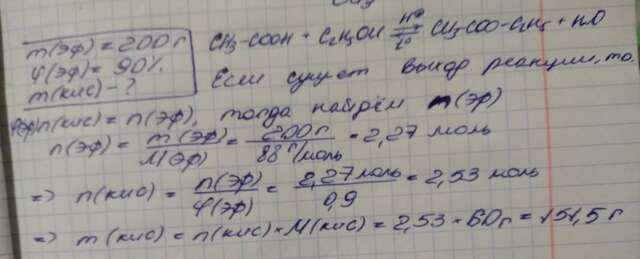 m(эф) = 200 г
φ(эф) = 90%
m(кис) - ?
CH₃-COOH + C₂H₅OH ⇄ CH₃COO-C₂H₅ + H₂O
H⊕
t°
Если сущест выход реакции, то
n(кис) = n(эф), тогда найдём m(эф)
n(эф) = m(эф)/M(эф) = 200 г/88 г/моль = 2,27 моль
=> n(кис) = n(эф)/φ(эф) = 2,27 моль/0,9 = 2,53 моль
=> m(кис) = n(кис) · M(кис) = 2,53 · 60 г = 151,5 г